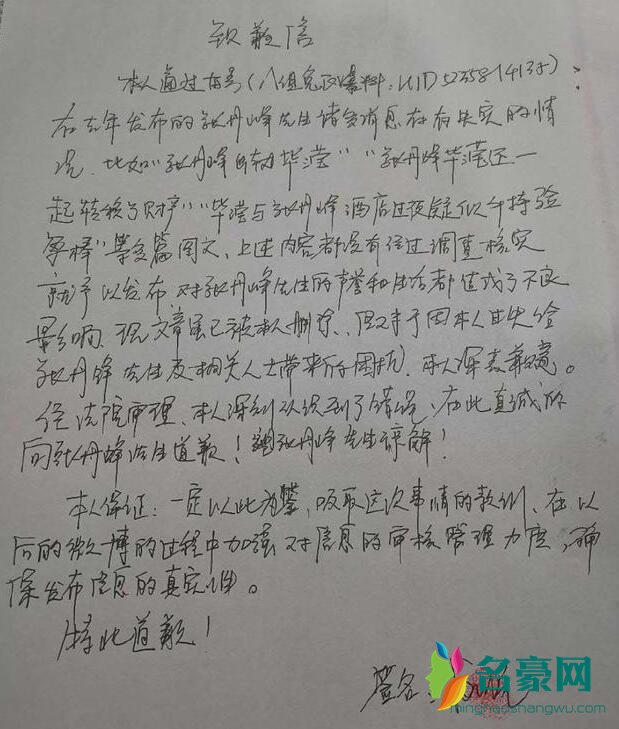 致歉信
本人通过布号(八组兔区爆料,UID 5235814135):
在去年发布的张丹峰先生诸多消息存有失实的情
况,比如"张丹峰 毕滢""张丹峰毕滢还一
起转移了财产""毕滢与张丹峰酒店过夜疑似千持验
孕棒"等多篇图文,上述内容都没有经过调查核实
就予以发布,对张丹峰先生的声誉和生活都造成了不良
影响,现文章虽已被本人删除,但对于因本人 失
张丹峰先生及相关人士带来的困扰,本人深表歉意。
经法院审理,本人深刻认识到了错误,在此真诚的
向张丹峰先生道歉! 张丹峰先生谅解!
本人保证:一定以此为鉴,吸取这次事情的教训,在以
后的微博的过程中加强对信息的审核管理力度,确
保发布信息的真实性。
特此道歉!
签名:
名豪网
minghaoshangwu.com